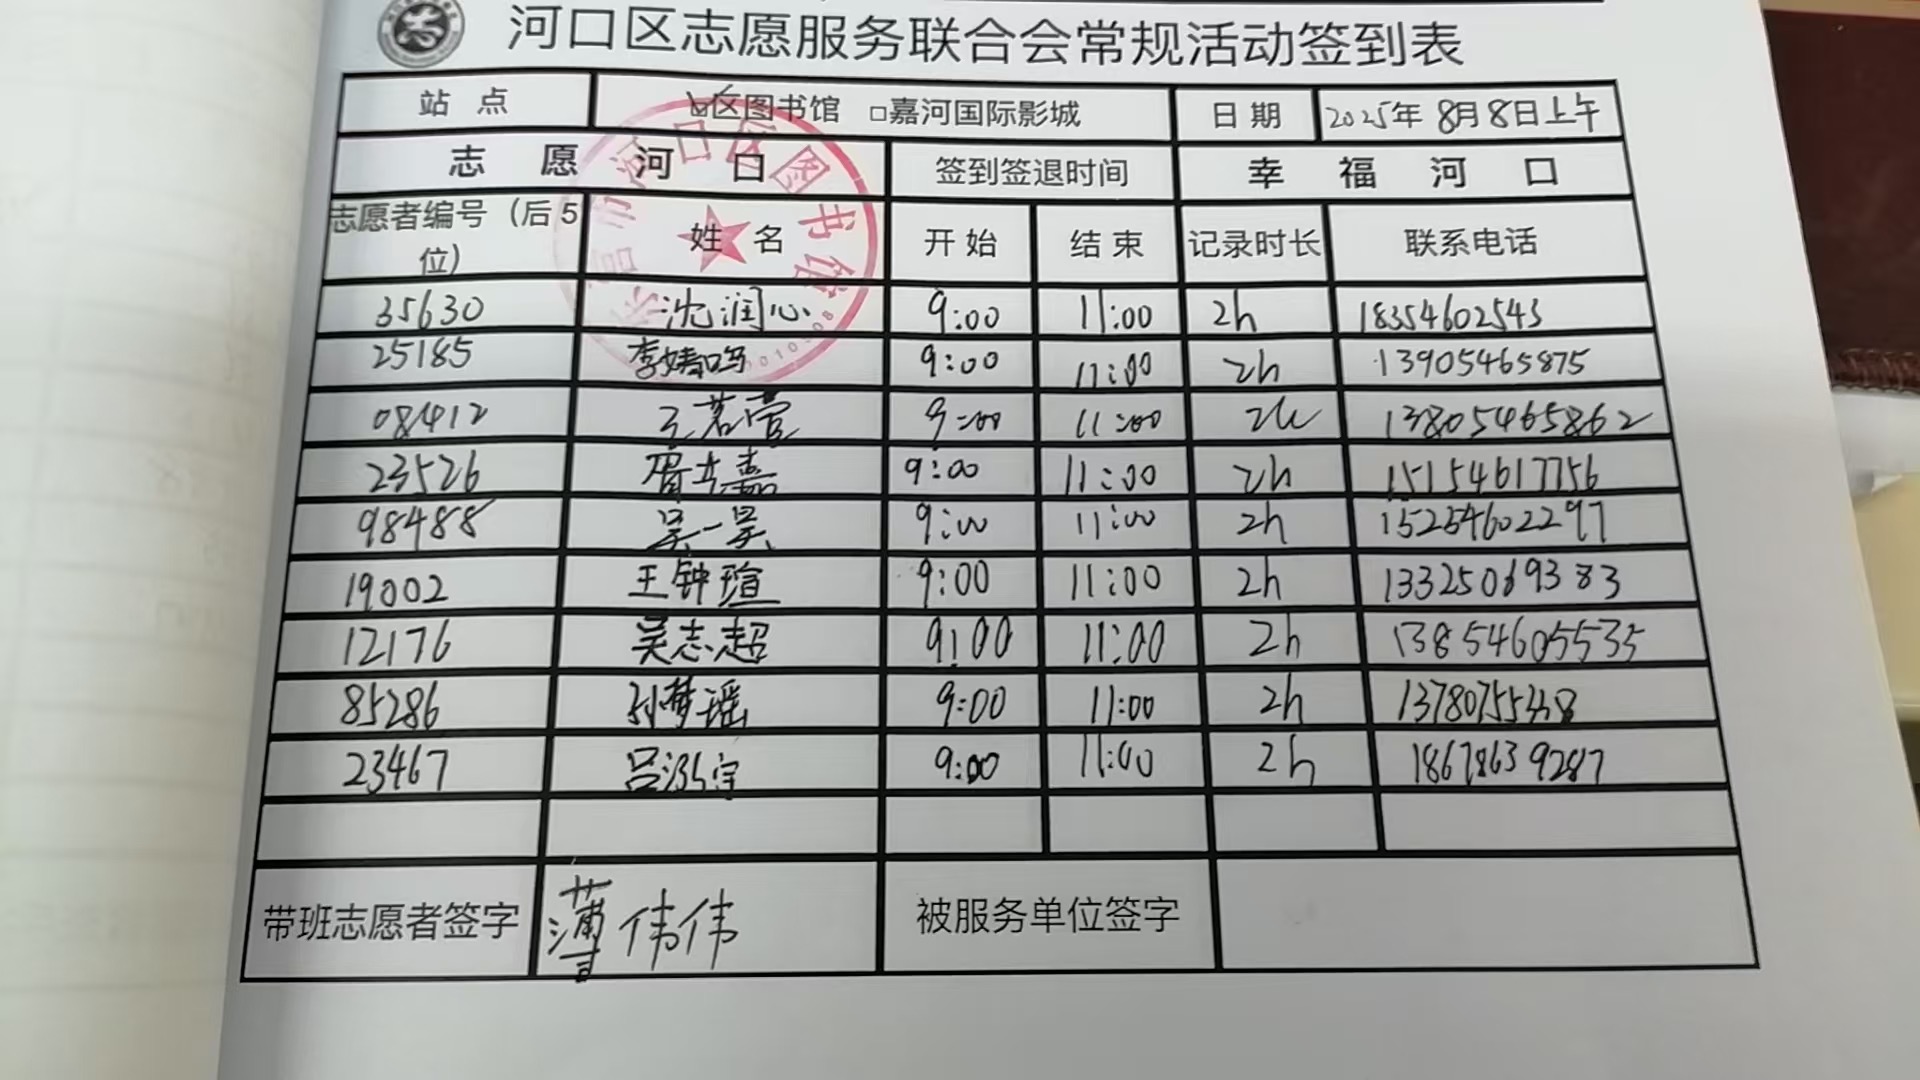 河口区志愿服务联合会常规活动签到表
站 点 ☑区图书馆 □嘉河国际影城 日 期 2025年 8月8日上午
志 愿 河 口 签到签退时间 幸 福 河 口
志愿者编号（后5位） 姓 名 开 始 结 束 记录时长 联系电话
35630 沈润心 9:00 11:00 2h 18354602543
25185 李婧鸣 9:00 11:00 2h 13905465875
08412 王茗萱 9:00 11:00 2h 13805465862
23526 9:00 11:00 2h 15154617756
98488 吴一昊 9:00 11:00 2h 15254602297
19002 王钟瑄 9:00 11:00 2h 13325069383
12176 吴志超 9:00 11:00 2h 13854605535
85286 孙梦瑶 9:00 11:00 2h
23467 9:00 11:00 2h 18678639287
带班志愿者签字 伟伟 被服务单位签字